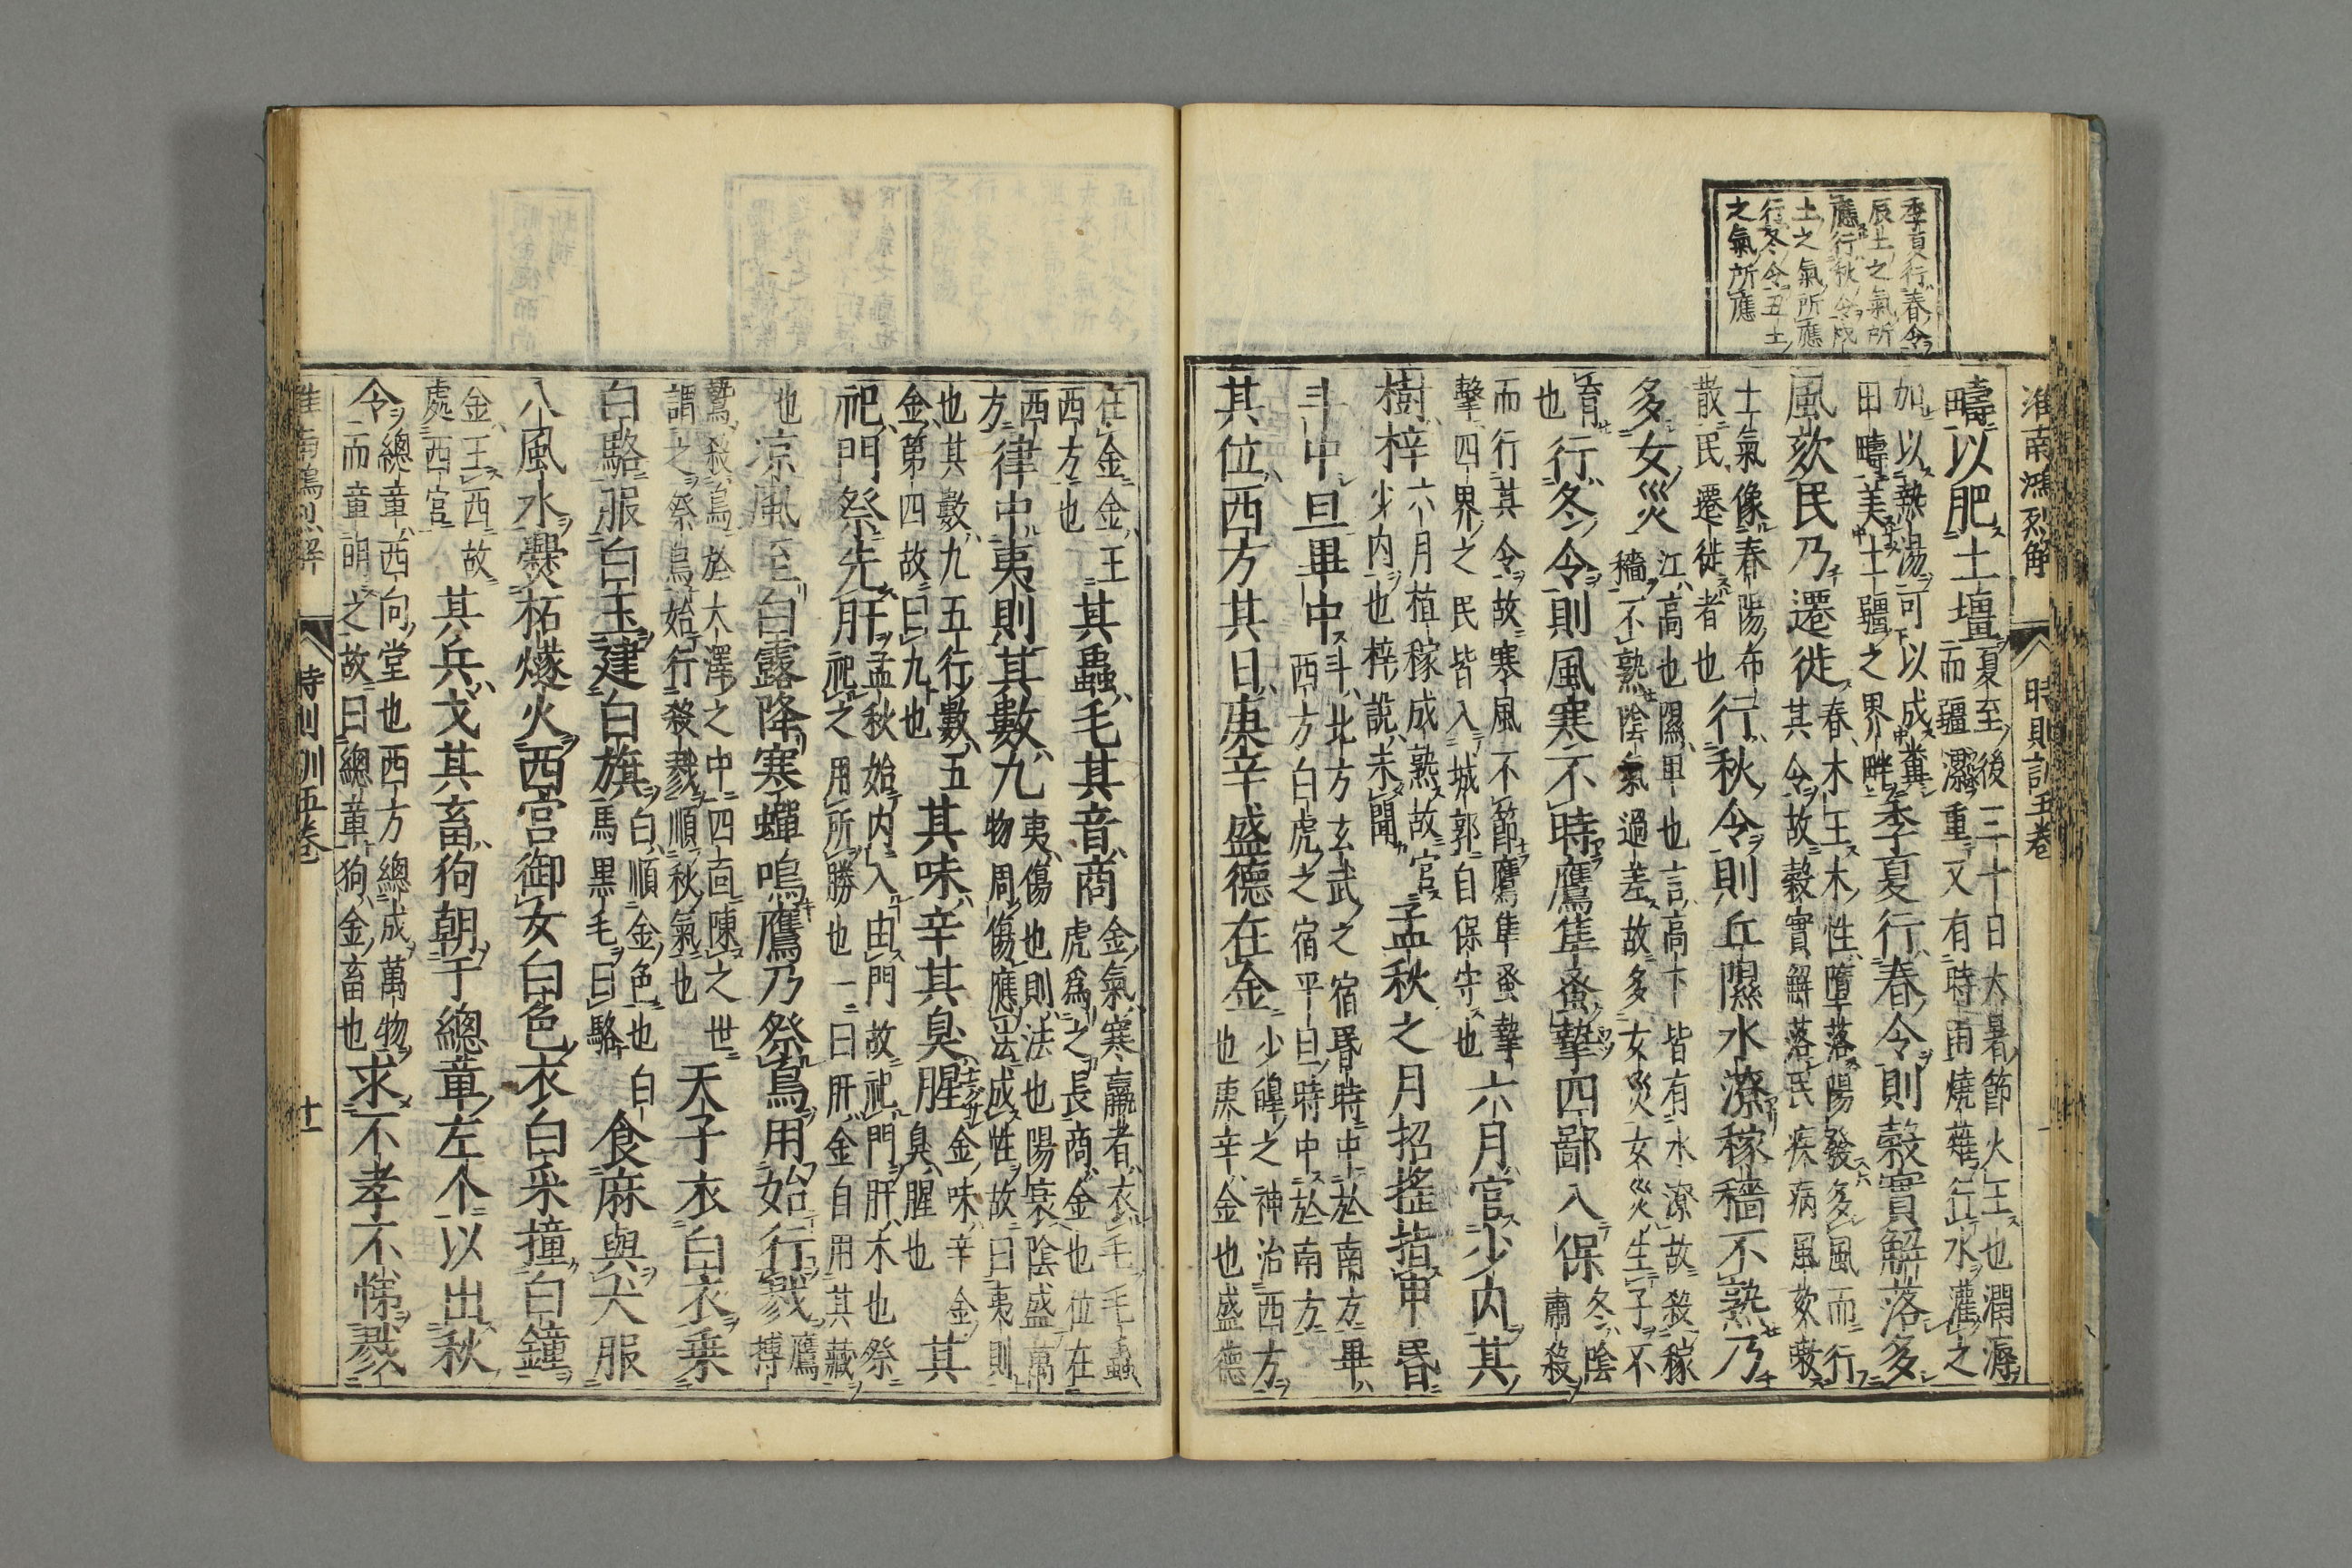 淮南鴻烈解 時則訓五卷
季夏行春令
辰土之氣所
應行秋令戌
土之氣所應
行冬令丑土
之氣所應
疇以肥土壃夏至後三十日大暑節火王也潤溽而疆重又有時雨燒薙行水灌之
加以熱湯可以成糞田疇美土疆之界畔季夏行春令則穀實解落多
風欬民乃遷徙春木王木性墮落陽發多風而行其令故穀實解落民疾病風欬嗽
士氣像春陽布散民遷徙者也行秋令則丘隰水潦稼穡不熟乃
多女災江高也隰卑也言高下皆有水潦故殺稼穡不熟陰氣過差故多女災女災生子不
育也行冬令則風寒不時鷹隼蚤摯四鄙入保冬陰肅殺
而行其令故寒風不節鷹隼蚤摯擊四界之民皆入城郭自保守也六月官少内其
樹梓六月植稼成熟故官少内也梓說未聞孟秋之月招搖指申昏
斗中旦畢中斗北方玄武之宿昏時中於南方畢西方白虎之宿平旦時中於南方
其位西方其日庚辛盛德在金少皥之神治西方也庚辛金也盛德
在金金王西方也其蟲毛其音商金氣寒羸者衣毛毛蟲虎爲之長商金也位在
西方律中夷則其數九夷傷也則法也陽衰陰盛萬物周傷應法成性故曰夷則
也其數九五行數五金第四故曰九也其味辛其臭腥金味辛金臭腥也其
祀門祭先肝孟秋始内入由門故祀門肝木也祭祀之用所勝也一曰肝金自用其藏
也凉風至白露降寒蟬鳴鷹乃祭鳥用始行戮鷹搏
鷙殺鳥於大澤之中四面陳之世謂之祭鳥始行殺戮順秋氣也天子衣白衣乗
白駱服白玉建白旗白順金色也白馬黒毛曰駱食麻與犬服
八風水爨柘燧火西宮御女白色衣白采撞白鐘
金王西故處西宮其兵戈其畜狗朝于總章左个以出秋
令總章西向堂也西方總成萬物而章明之故曰總章狗金畜也求不孝不悌戮
淮南鴻烈解 時則訓五卷 十一